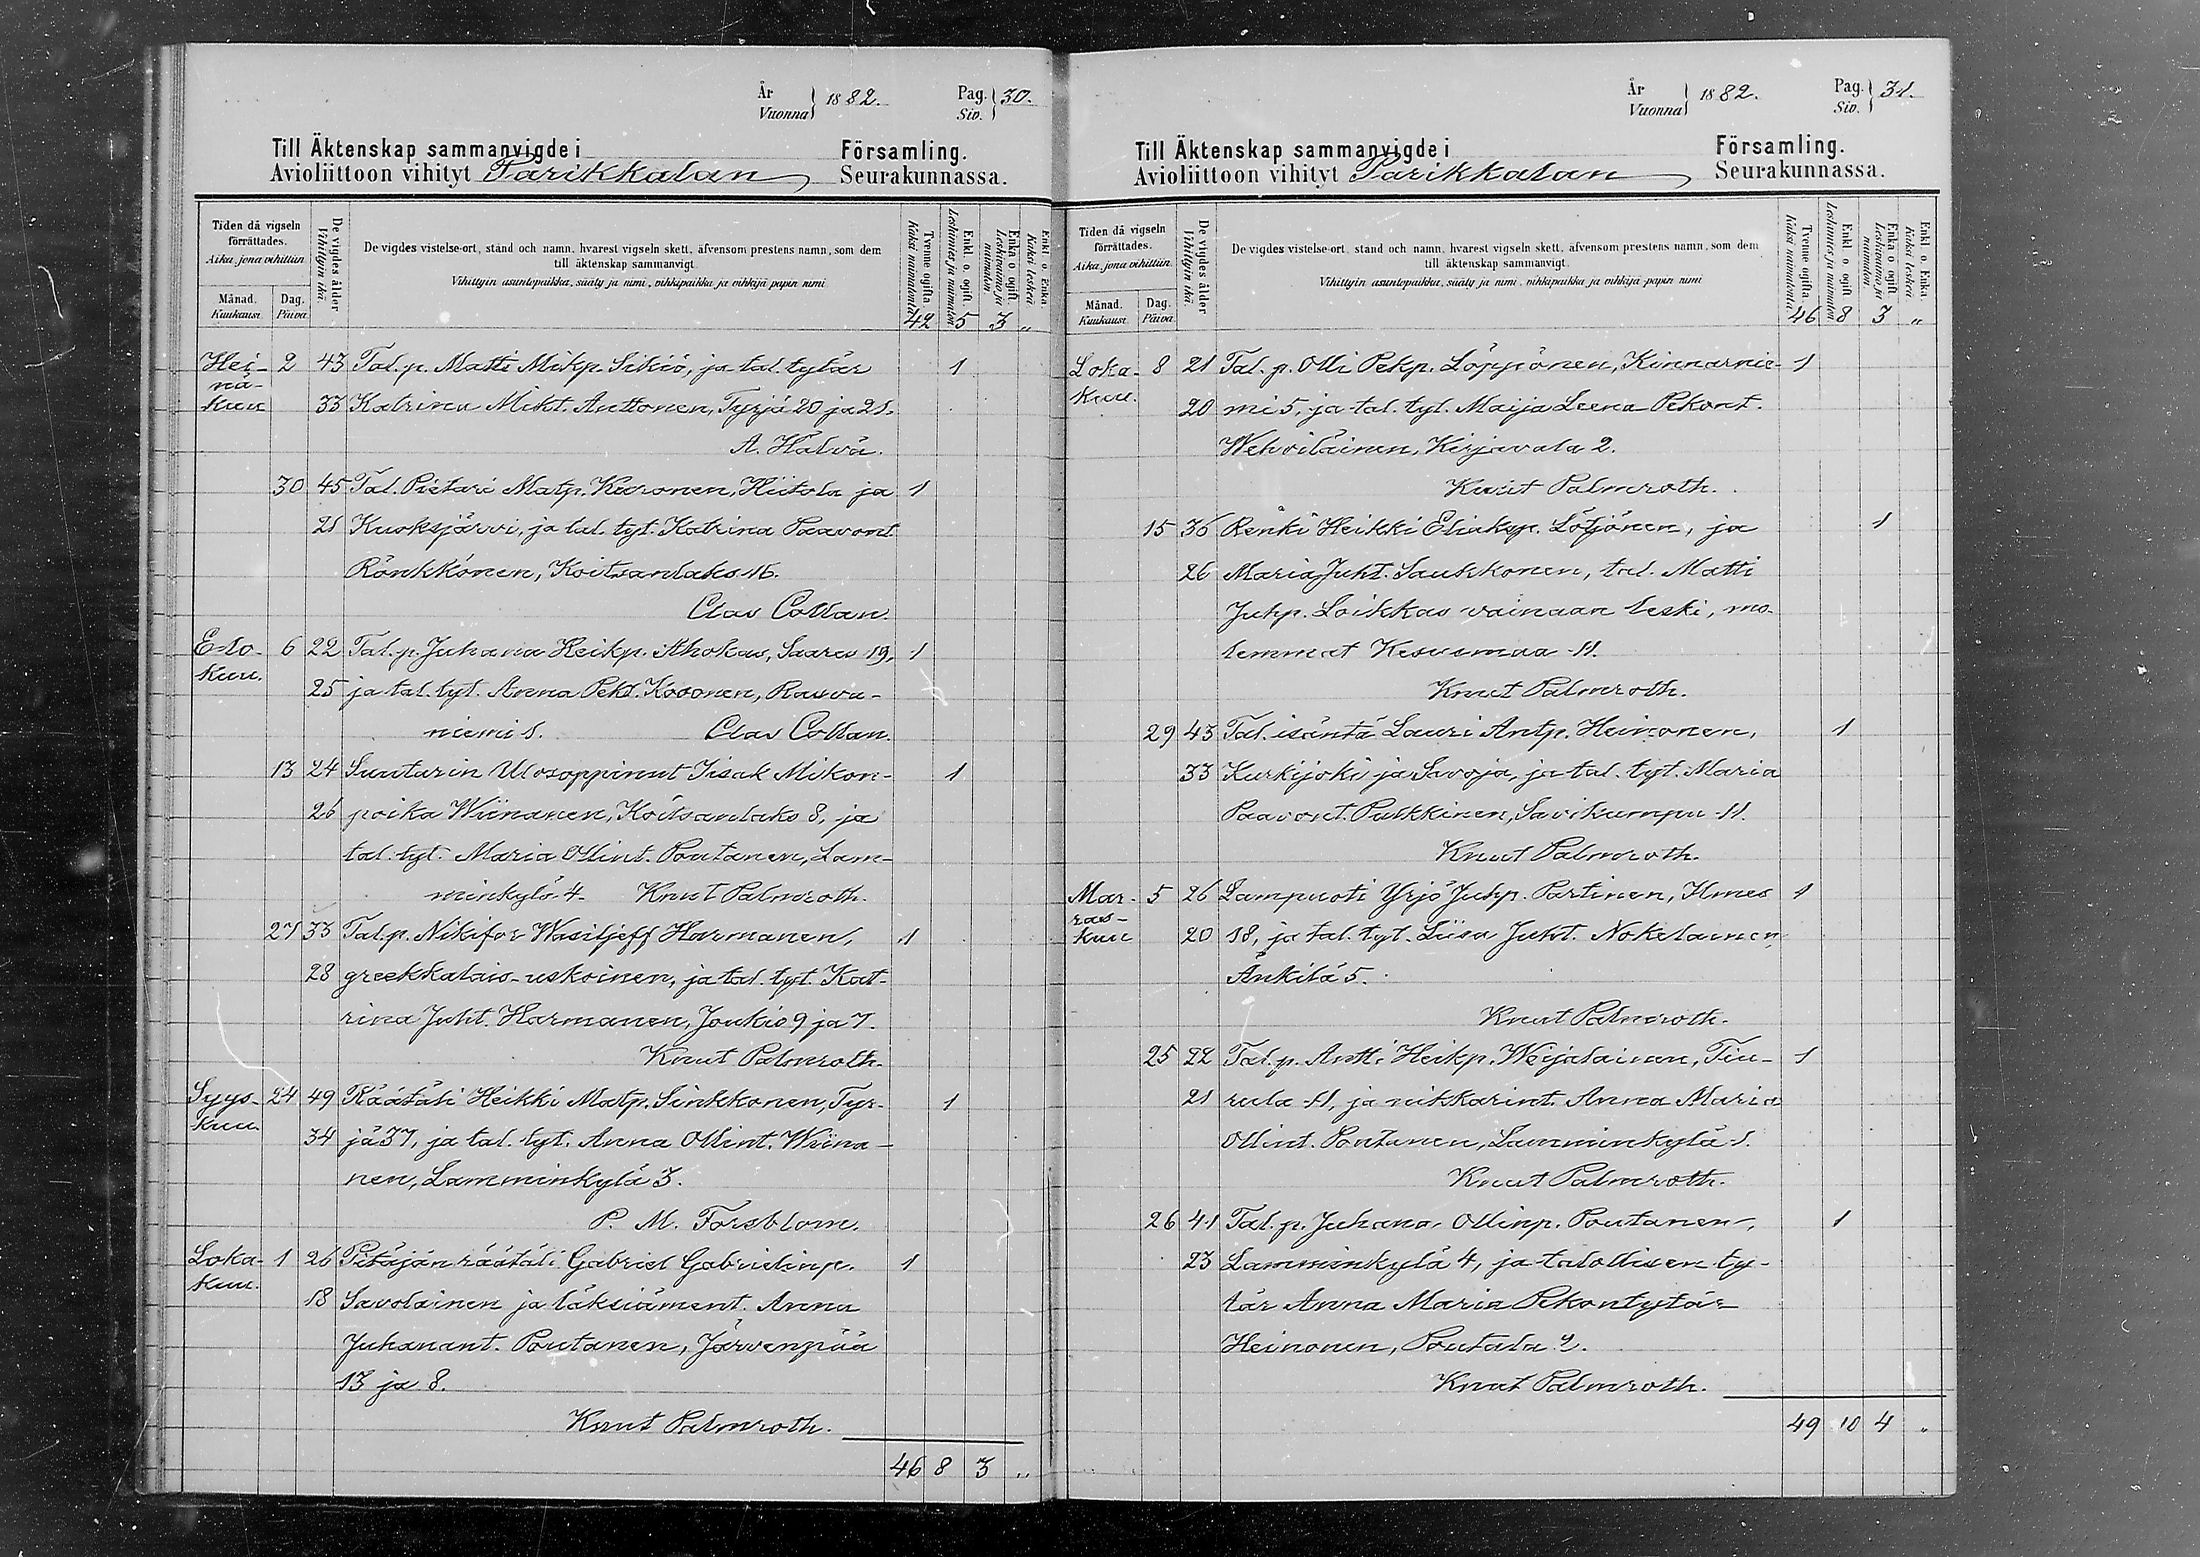 År
Vuonna } 1882. Pag.
Siv. } 30.
Till Äktenskap sammanvigde i Församling.
Avioliittoon vihityt Parikkalan Seurakunnassa.
Tiden då vigseln förrättades.
Aika, jona vihittiin.
Månad. Kuukausi.
Dag. Päivä.
De vigdes ålder
Vihittyin ikä.
De vigdes vistelse-ort, stånd och namn, hvarest vigseln skett, äfvensom prestens namn, som dem
till äktenskap sammanvigt.
Vihittyin asuntopaikka, sääty ja nimi, vihkipaikka ja vihkijä-papin nimi.
Tvenne ogifta
Kaksi naimatonta
Enkl. o. ogift.
Leskimies ja naimaton
Enka o. ogift.
Leskivaimo ja naimaton
Enkl. o. Enka
Kaksi leskeä
42 5 3 „
Hei- 2 43 Tal. p. Matti Mikp. Sikiö, ja tal. tytär 1
nä-
kuu 33 Katrina Mikt. Anttonen, Tyrjä 20 ja 21.
A. Hälvä.
30 45 Tal. Pietari Matp. Kuronen, Hiitola ja 1
21 Kuoksjärvi, ja tal. tyt. Katrina Paavont.
Rönkkönen, Koitsanlaks 16.
Clas Collan.
Elo- 6 22 Tal. p. Juhana Heikp. Ahokas, Saares 19, 1
kuu. 25 ja tal. tyt. Anna Pekt. Kosonen, Rasva-
niemi 1. Clas Collan.
13 24 Suutarin Ulosoppinut Iisak Mikon- 1
26 poika Wiinanen, Koitsanlaks 8, ja
tal. tyt. Maria Ollint. Poutanen, Lam-
minkylä 4. Knut Palmroth.
27 33 Tal. p. Nikifor Wasiljeff Harmanen, 1
28 greekkalais-uskoinen, ja tal. tyt. Kat-
rina Juht. Harmanen, Joukio 9 ja 7.
Knut Palmroth.
Syys- 24 49 Räätäli Heikki Matp. Sinkkonen, Tyr- 1
kuu. 34 jä 37, ja tal. tyt. Anna Ollint. Wiina-
nen, Lamminkylä 3.
P. M. Forsblom.
Loka- 1 26 Pitäjän räätäli Gabriel Gabrielinp. 1
kuu. 18 Savolainen ja läksiäment. Anna
Juhanant. Poutanen, Järvenpää
13 ja 8.
Knut Palmroth.
46 8 3 „
År
Vuonna } 1882. Pag.
Siv. } 31.
Till Äktenskap sammanvigde i Församling.
Avioliittoon vihityt Parikkalan Seurakunnassa.
Tiden då vigseln förrättades.
Aika, jona vihittiin.
Månad. Kuukausi.
Dag. Päivä.
De vigdes ålder
Vihittyin ikä.
De vigdes vistelse-ort, stånd och namn, hvarest vigseln skett, äfvensom prestens namn, som dem
till äktenskap sammanvigt.
Vihittyin asuntopaikka, sääty ja nimi, vihkipaikka ja vihkijä-papin nimi.
Tvenne ogifta
Kaksi naimatonta
Enkl. o. ogift.
Leskimies ja naimaton
Enka o. ogift.
Leskivaimo ja naimaton
Enkl. o. Enka
Kaksi leskeä
46 8 3 „
Loka- 8 21 Tal. p. Olli Pekp. Löppönen, Kinnarnie- 1
kuu. 20 mi 5, ja tal. tyt. Maija Leena Pekont.
Wehviläinen, Kirjavala 2.
Knut Palmroth.
15 36 Renki Heikki Eliaksp. Lötjönen, ja 1
26 Maria Juht. Saukkonen, tal. Matti
Juhp. Loikkas vainaan leski, mo-
lemmat Kesusmaa 11.
Knut Palmroth.
29 43 Tal. isäntä Lauri Antp. Heinonen, 1
33 Kurkijoki ja Savoja, ja tal. tyt. Maria
Paavont. Pulkkinen, Savikumpu 11.
Knut Palmroth.
Mar- 5 26 Lampuoti Yrjö Juhp. Partinen, Ilmes 1
ras-
kuu 20 18, ja tal. tyt. Liisa Juht. Nokelainen,
Änkilä 5.
Knut Palmroth.
25 22 Tal. p. Antti Heikp. Weijalainen, Tiu- 1
21 rula 11, ja nikkarint. Anna Maria
Ollint. Pontanen, Lamminkylä 1.
Knut Palmroth.
26 41 Tal. p. Juhana Ollinp. Poutanen, 1
23 Lamminkylä 4, ja talollisen ty-
tär Anna Maria Pekontytär
Heinonen, Poutala 2.
Knut Palmroth.
49 10 4 „